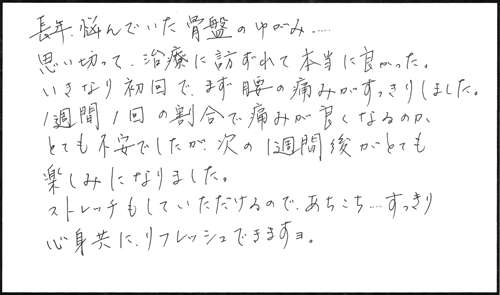 長年、悩んでいた骨盤のゆがみ……
思い切って、治療に訪ずれて本当に良かった。
いきなり初回で、まず腰の痛みがすっきりしました。
1週間1回の割合で痛みが良くなるのか、
とても不安でしたが、次の1週間後がとても
楽しみになりました。
ストレッチもしていただけるので、あちこち…すっきり
心身共に、リフレッシュできますョ。